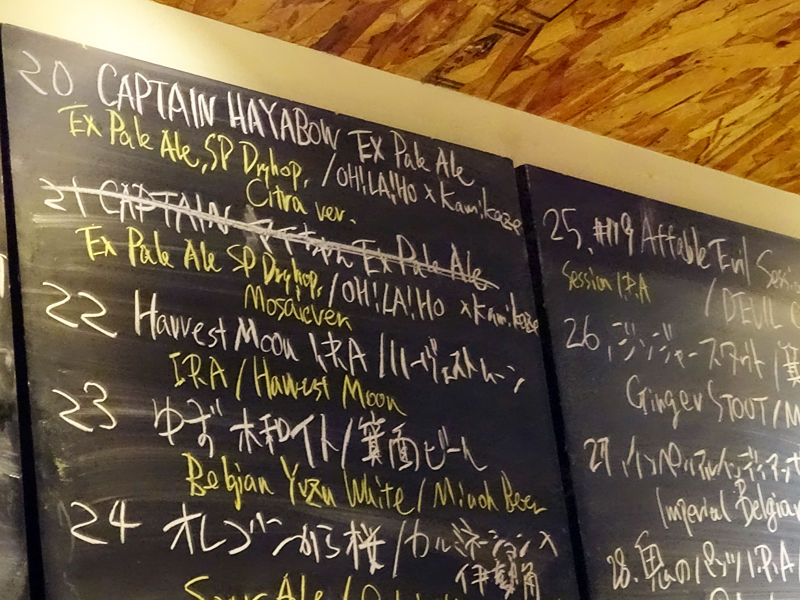 20 CAPTAIN HAYABOW EX Pale Ale
Ex Pale Ale, SP Dryhop, /OH!LA!HO x Kamikaze
Citra ver.
21 CAPTAIN Ex Pale Ale
Ex Pale Ale SP Dryhop, /OH!LA!HO x Kamikaze
Mosaic ver
22 Harvest Moon I.R.A /ハーヴェストムーン
IRA / Harvest Moon
23 ゆず ホワイト/箕面ビール
Belgian Yuzu White / Minoh Beer
24 オレゴンから桜/カルネーション
伊勢角
Sour Ale /
25. #119 Affable Evil
Session I.P.A / DEVIL
26. ジンジャースタウト/箕
Ginger STOUT / M
27. インペリアル
Imperial Belgian
28. 鬼の I.P.A /